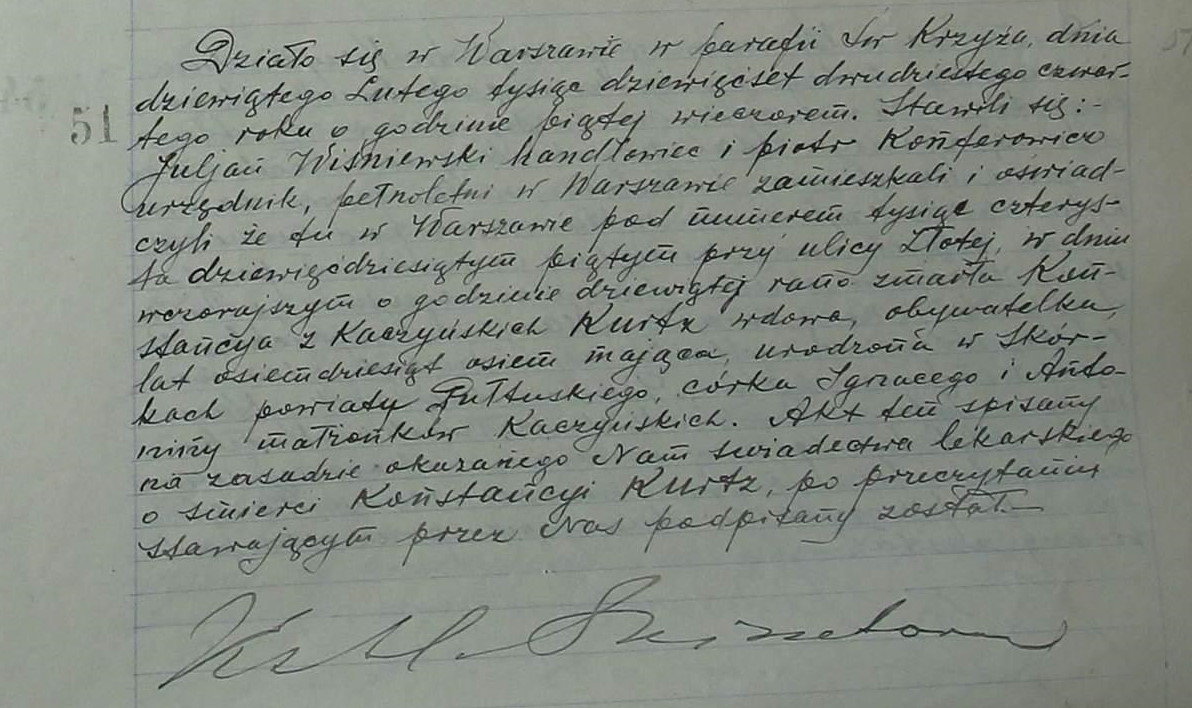 Działo się w Warszawie w parafii Św Krzyża, dnia
dziewiątego Lutego tysiąc dziewięćset dwudziestego czwar-
51 tego roku o godzinie piątej wieczorem. Stawili się:-
Juljan Wiśniewski handlowiec i piotr Konferowicz
urzędnik, pełnoletni w Warszawie zamieszkali i oświad-
czyli że tu w Warszawie pod numerem tysiąc czterys-
ta dziewięćdziesiątym piątym przy ulicy Złotej, w dniu
wczorajszym o godzinie dziewiątej rano zmarła Kon-
stancya z Kaczyńskich Kurtz wdowa, obywatelka,
lat osiemdziesiąt osiem mająca, urodzona w Skór-
kach powiatu Pułtuskiego, córka Ignacego i Anto-
niny małżonków Kaczyńskich. Akt ten spisany
na zasadzie okazanego Nam świadectwa lekarskiego
o śmierci Konstancyi Kurtz, po przeczytaniu
stawającym przez Nas podpisany został.—